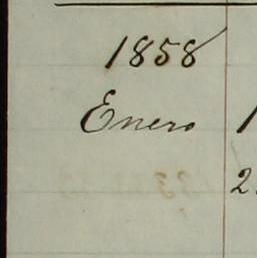 1858
Enero 1
2